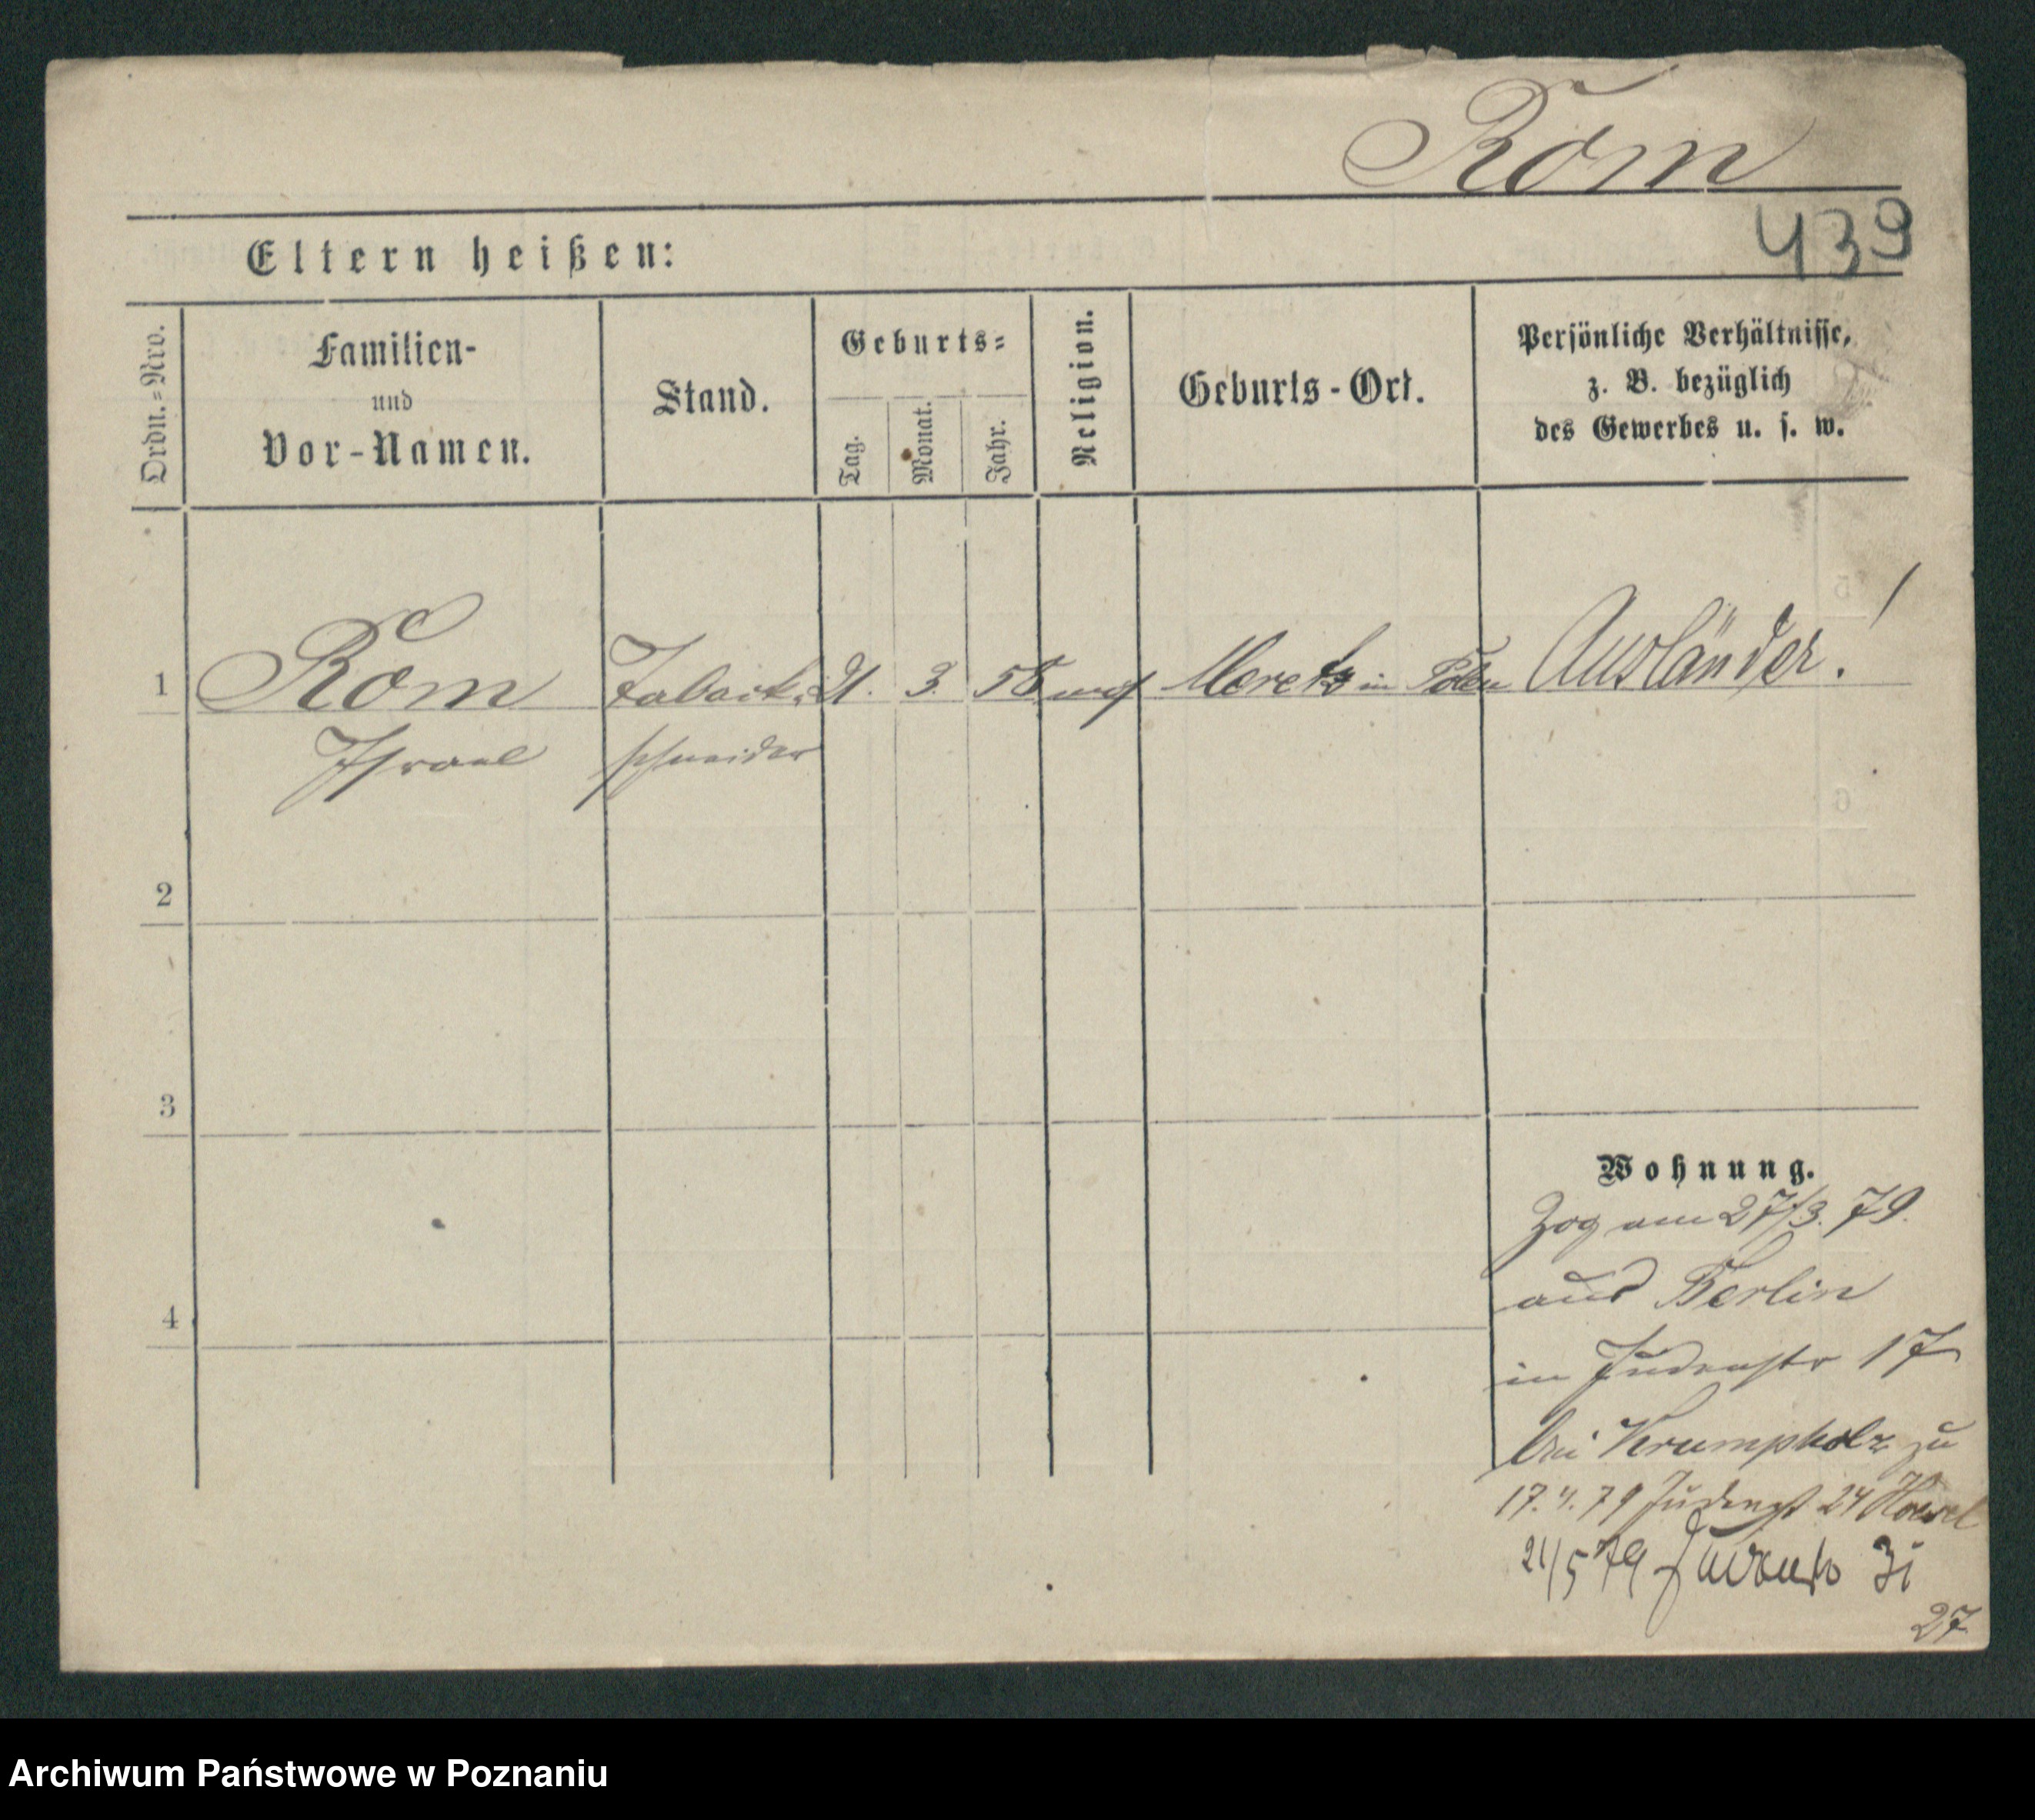 Rom
439
Eltern heißen:
Ordn.=Nro.
Familien-
und
Vor-Namen.
Stand.
Geburts=
Tag.
Monat.
Jahr.
Religion.
Geburts-Ort.
Persönliche Verhältnisse,
z. B. bezüglich
des Gewerbes u. s. w.
1 Rom Taback- 21. 3. 58 mos Meretz in Polen Ausländer!
Israel schneider
2
3
4
Wohnung.
Zog am 27/3. 79.
aus Berlin
in Judenstr 17
bei Krumpholz zu
17. 4. 79 Judenst 24
21/5 79 Judenstr 31
27
Archiwum Państwowe w Poznaniu